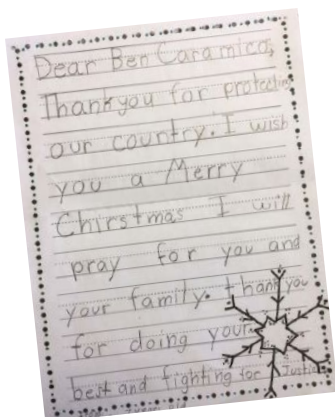 Dear Ben Caramico,
Thankyou for protecting
our country. I wish
you a Merry
Chirstmas I will
pray for you and
your family. thank you
for doing your
best and fighting for Justice